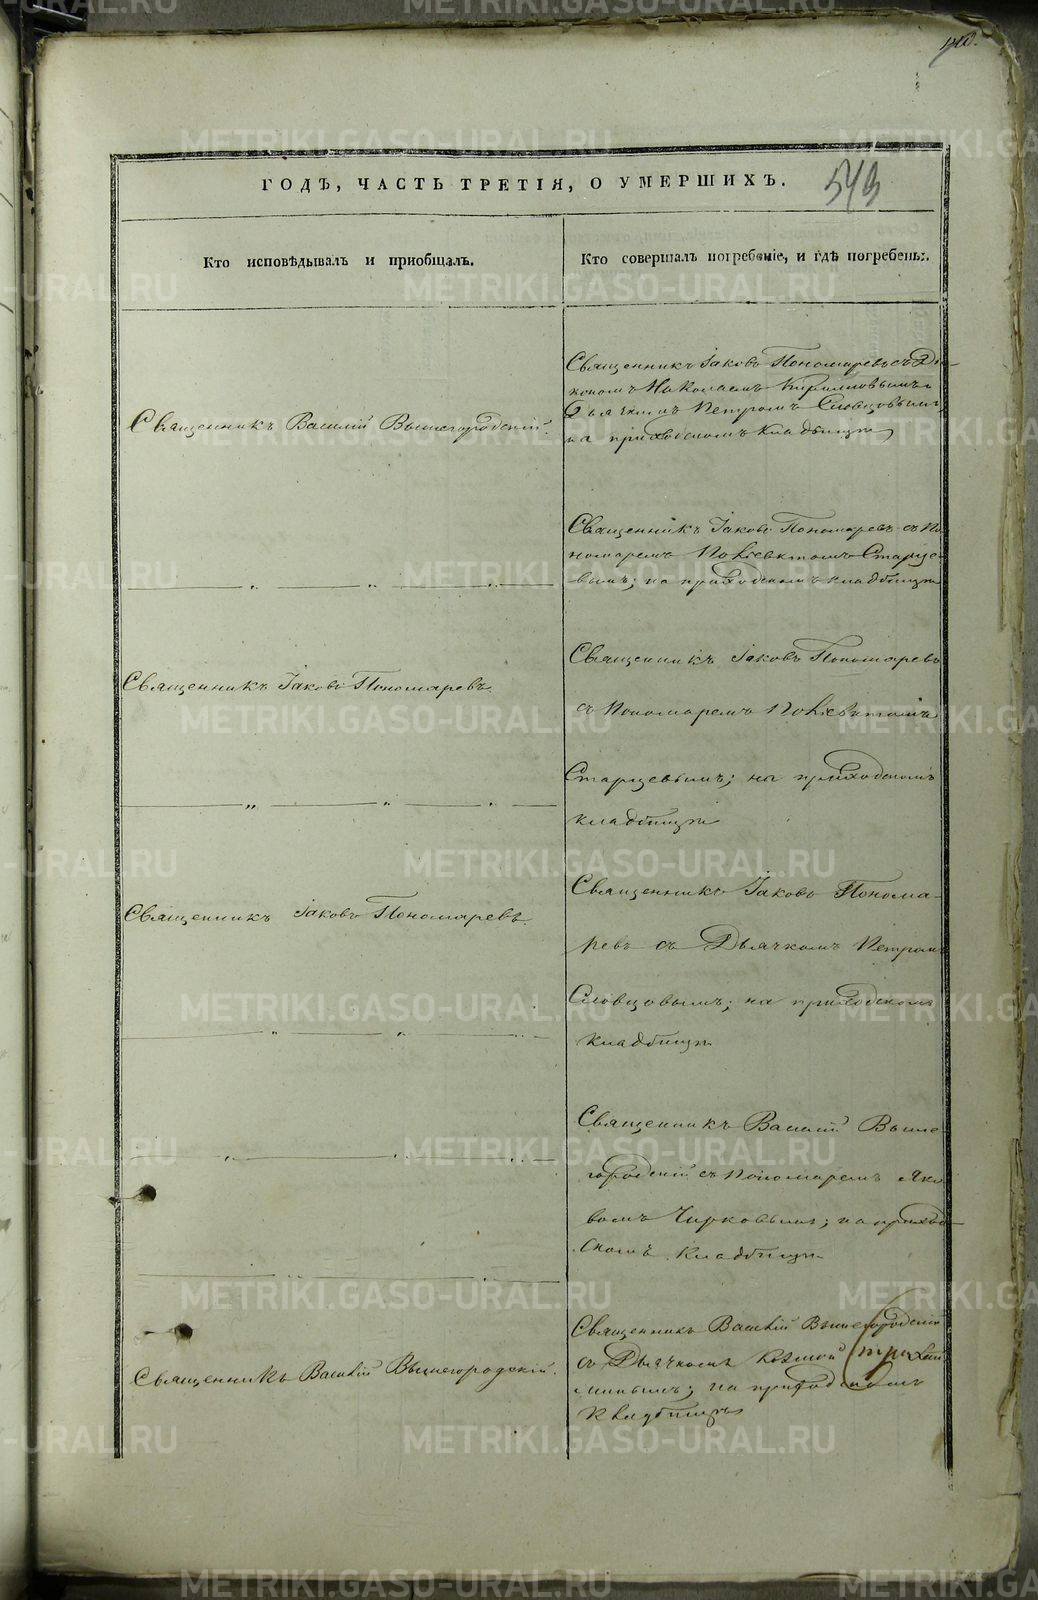 543
ГОДЪ, ЧАСТЬ ТРЕТІЯ, О УМЕРШИХЪ.
Кто исповѣдывалъ и приобщалъ.
Кто совершалъ погребеніе, и гдѣ погребены.
Священникъ Василій Вышегородскій.
Священникъ Іаковъ Пономаревъ съ Діа-
кономъ Николаемъ Кирилловымъ и
Дьячкомъ Петромъ Словцовымъ;
на приходскомъ кладбищѣ
Священникъ Іаковъ Пономаревъ съ По-
номаремъ Старце-
вымъ; на приходскомъ кладбищѣ
Священникъ Іаковъ Пономаревъ.
Священникъ Іаковъ Пономаревъ
съ Пономаремъ
Старцевымъ; на приходскомъ
кладбищѣ
Священникъ Іаковъ Пономаревъ.
Священникъ Іаковъ Понома-
ревъ съ Дьячкомъ Петромъ
Словцовымъ; на приходскомъ
кладбищѣ
Священникъ Василій Выше-
городскій съ Пономаремъ Яко-
вомъ Чирковымъ; на приход-
скомъ кладбищѣ
Священникъ Василій Вышегородскій.
Священникъ Василій Вышегородскій
съ Дьячкомъ Козмой
на приходскомъ
кладбищѣ
METRIKI.GASO-URAL.RU